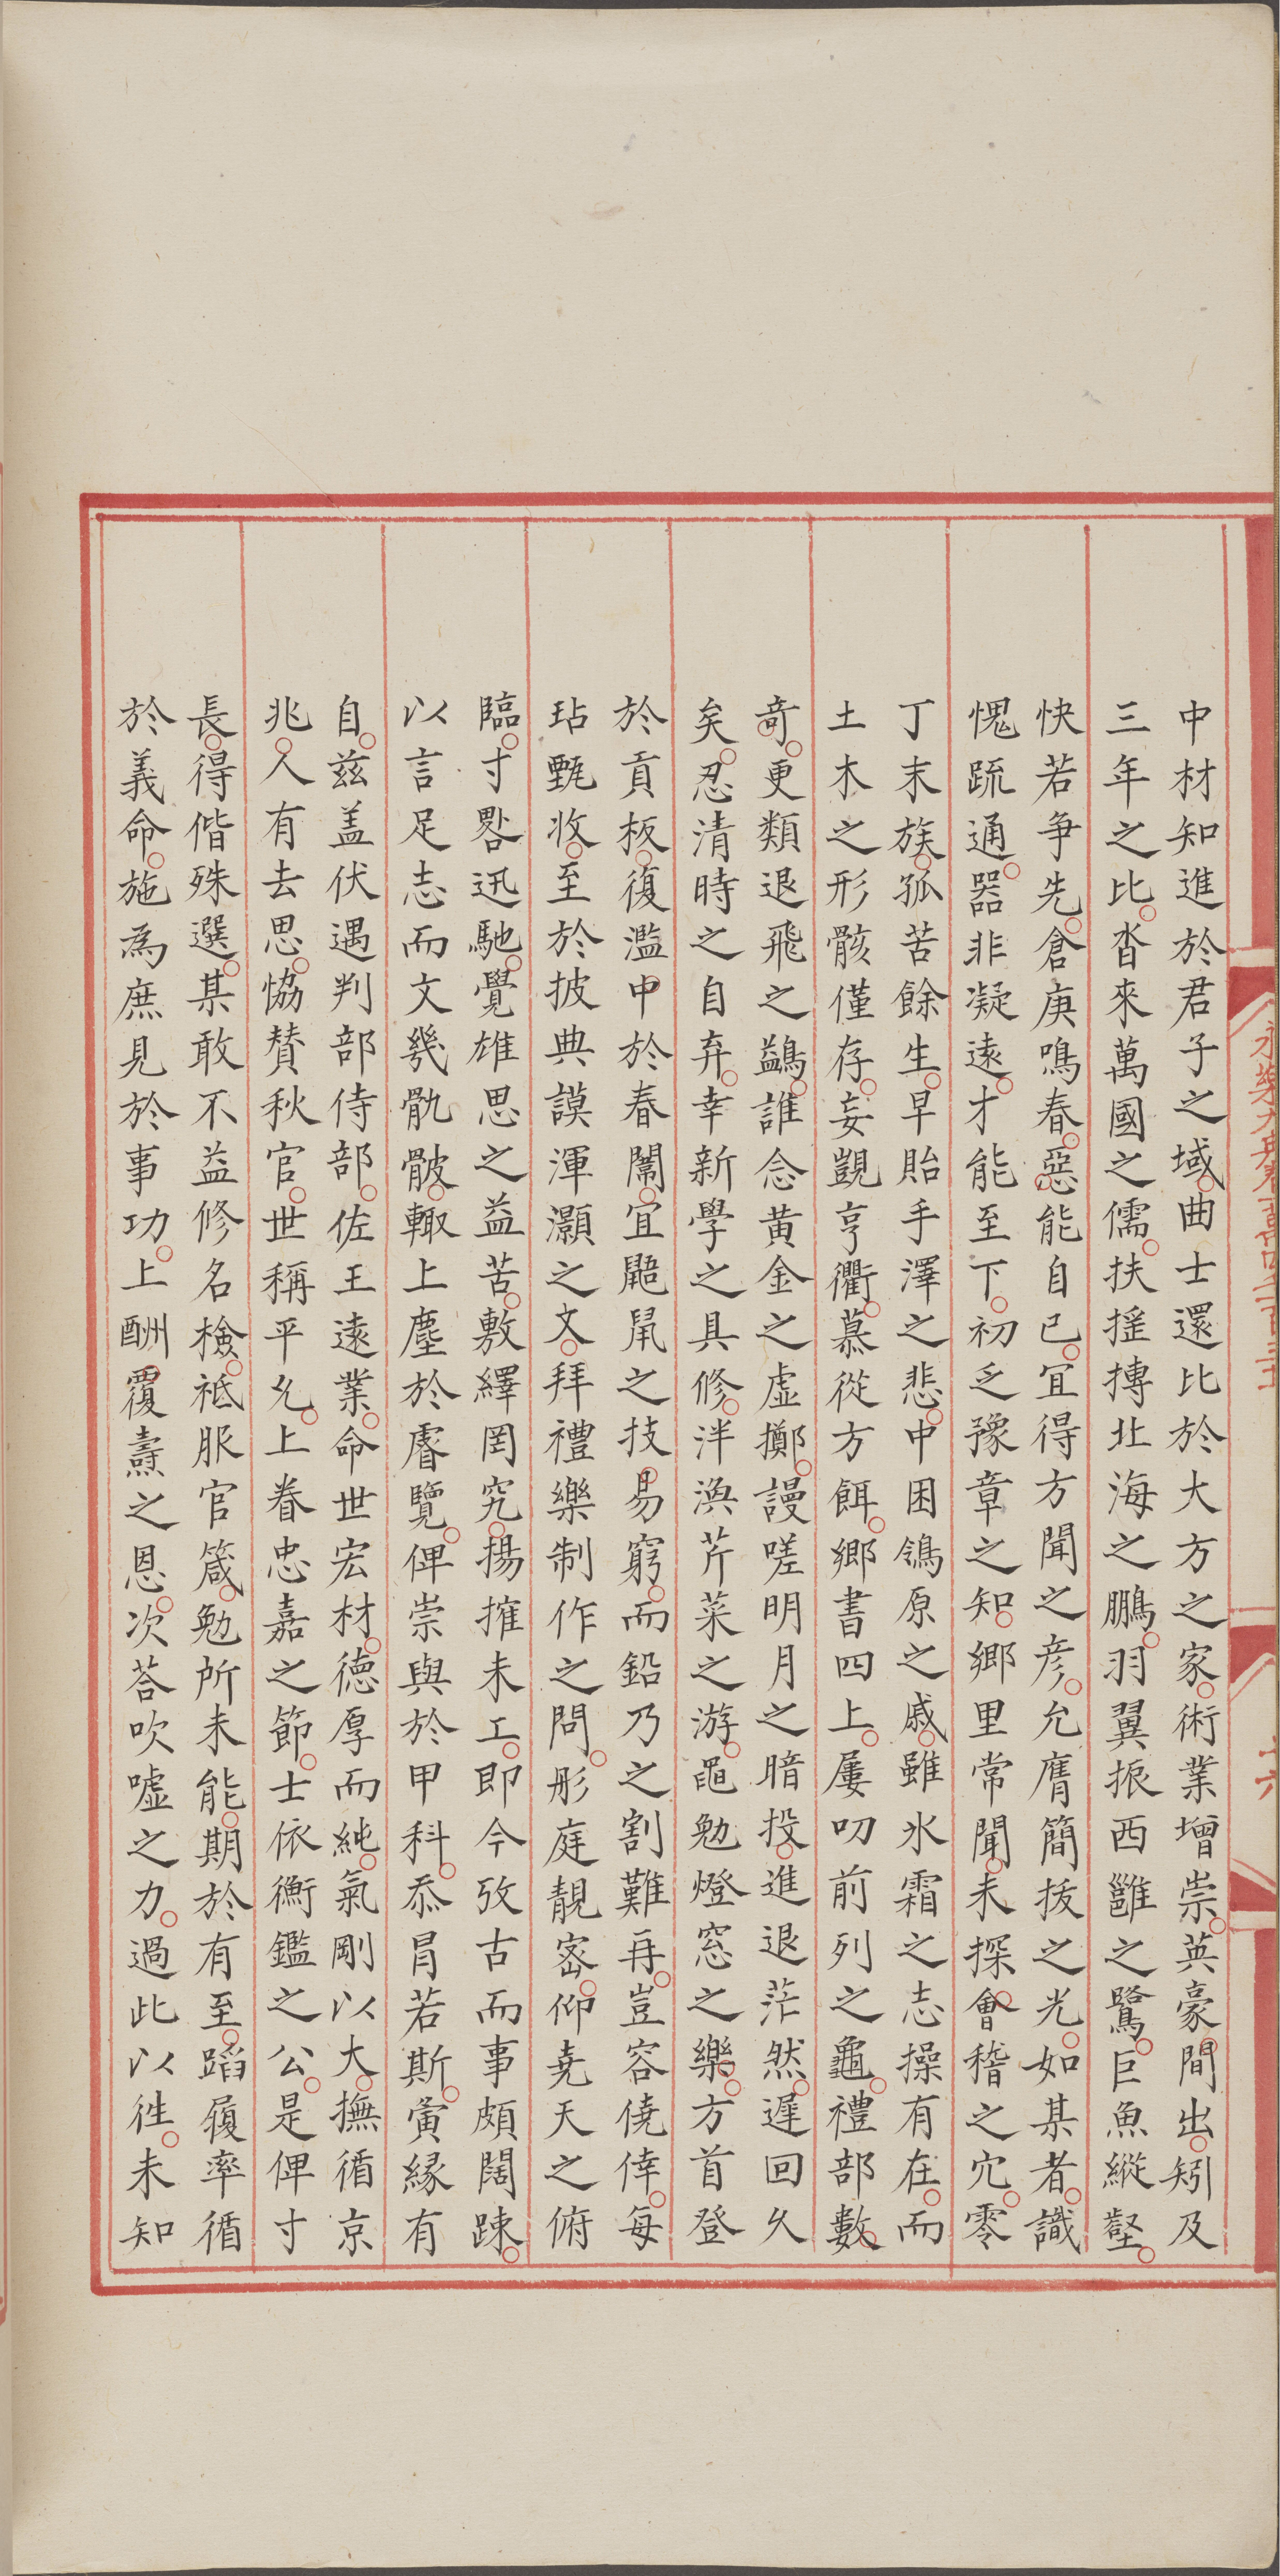 中材知進於君子之域曲士還比於大方之家術業增崇英豪間出矧及
三年之比沓來萬國之儒扶搖摶北海之鵬羽翼振西雝之鷺巨魚縱壑
快若爭先倉庚鳴春惡能自已宜得方聞之彥允膺簡拔之光如某者識
愧疏通器非凝遠才能至下初乏豫章之知鄉里常聞未探會稽之穴零
丁末族孤苦餘生早貽手澤之悲中困鴒原之戚雖氷霜之志操有在而
土木之形骸僅存妄覬亨衢慕從方餌鄉書四上屢叨前列之龜禮部數
奇更類退飛之鷁誰念黃金之虛擲謾嗟明月之暗投進退茫然遲回久
矣忍清時之自弃幸新學之具修泮渙芹菜之游黽勉燈窓之樂方首登
於貢板復濫中於春闈宜鼯鼠之技易窮而鉛刀之割難再豈容僥倖每
玷甄收至於披典謨渾灝之文拜禮樂制作之問彤庭靚密仰堯天之俯
臨寸晷迅馳覺雄思之益苦敷繹罔究揚搉未工即今攷古而事頗闊踈
以言足志而文幾骩骳輙上塵於睿覽俾崇與於甲科忝冒若斯寅緣有
自兹盖伏遇判部侍部佐王遠業命世宏材德厚而純氣剛以大撫循京
兆人有去思恊贊秋官世稱平允上眷忠嘉之節士依衡鑑之公是俾寸
長得偕殊選某敢不益修名檢祗服官箴勉所未能期於有至蹈履率循
於義命施為庶見於事功上酬覆燾之恩次荅吹噓之力過此以徃未知